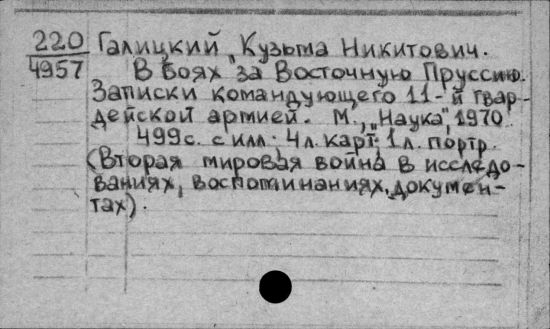 220 Галицкий, Кузьма Никитович.
4957 В боях за Восточную Пруссию.
Записки командующего 11-й гвар-
дейской армией. М., "Наука", 1970.
499с. с илл.; 4л. карт; 1л. портр.
(Вторая мировая война в исследо-
ваниях, воспоминаниях, докумен-
тах).